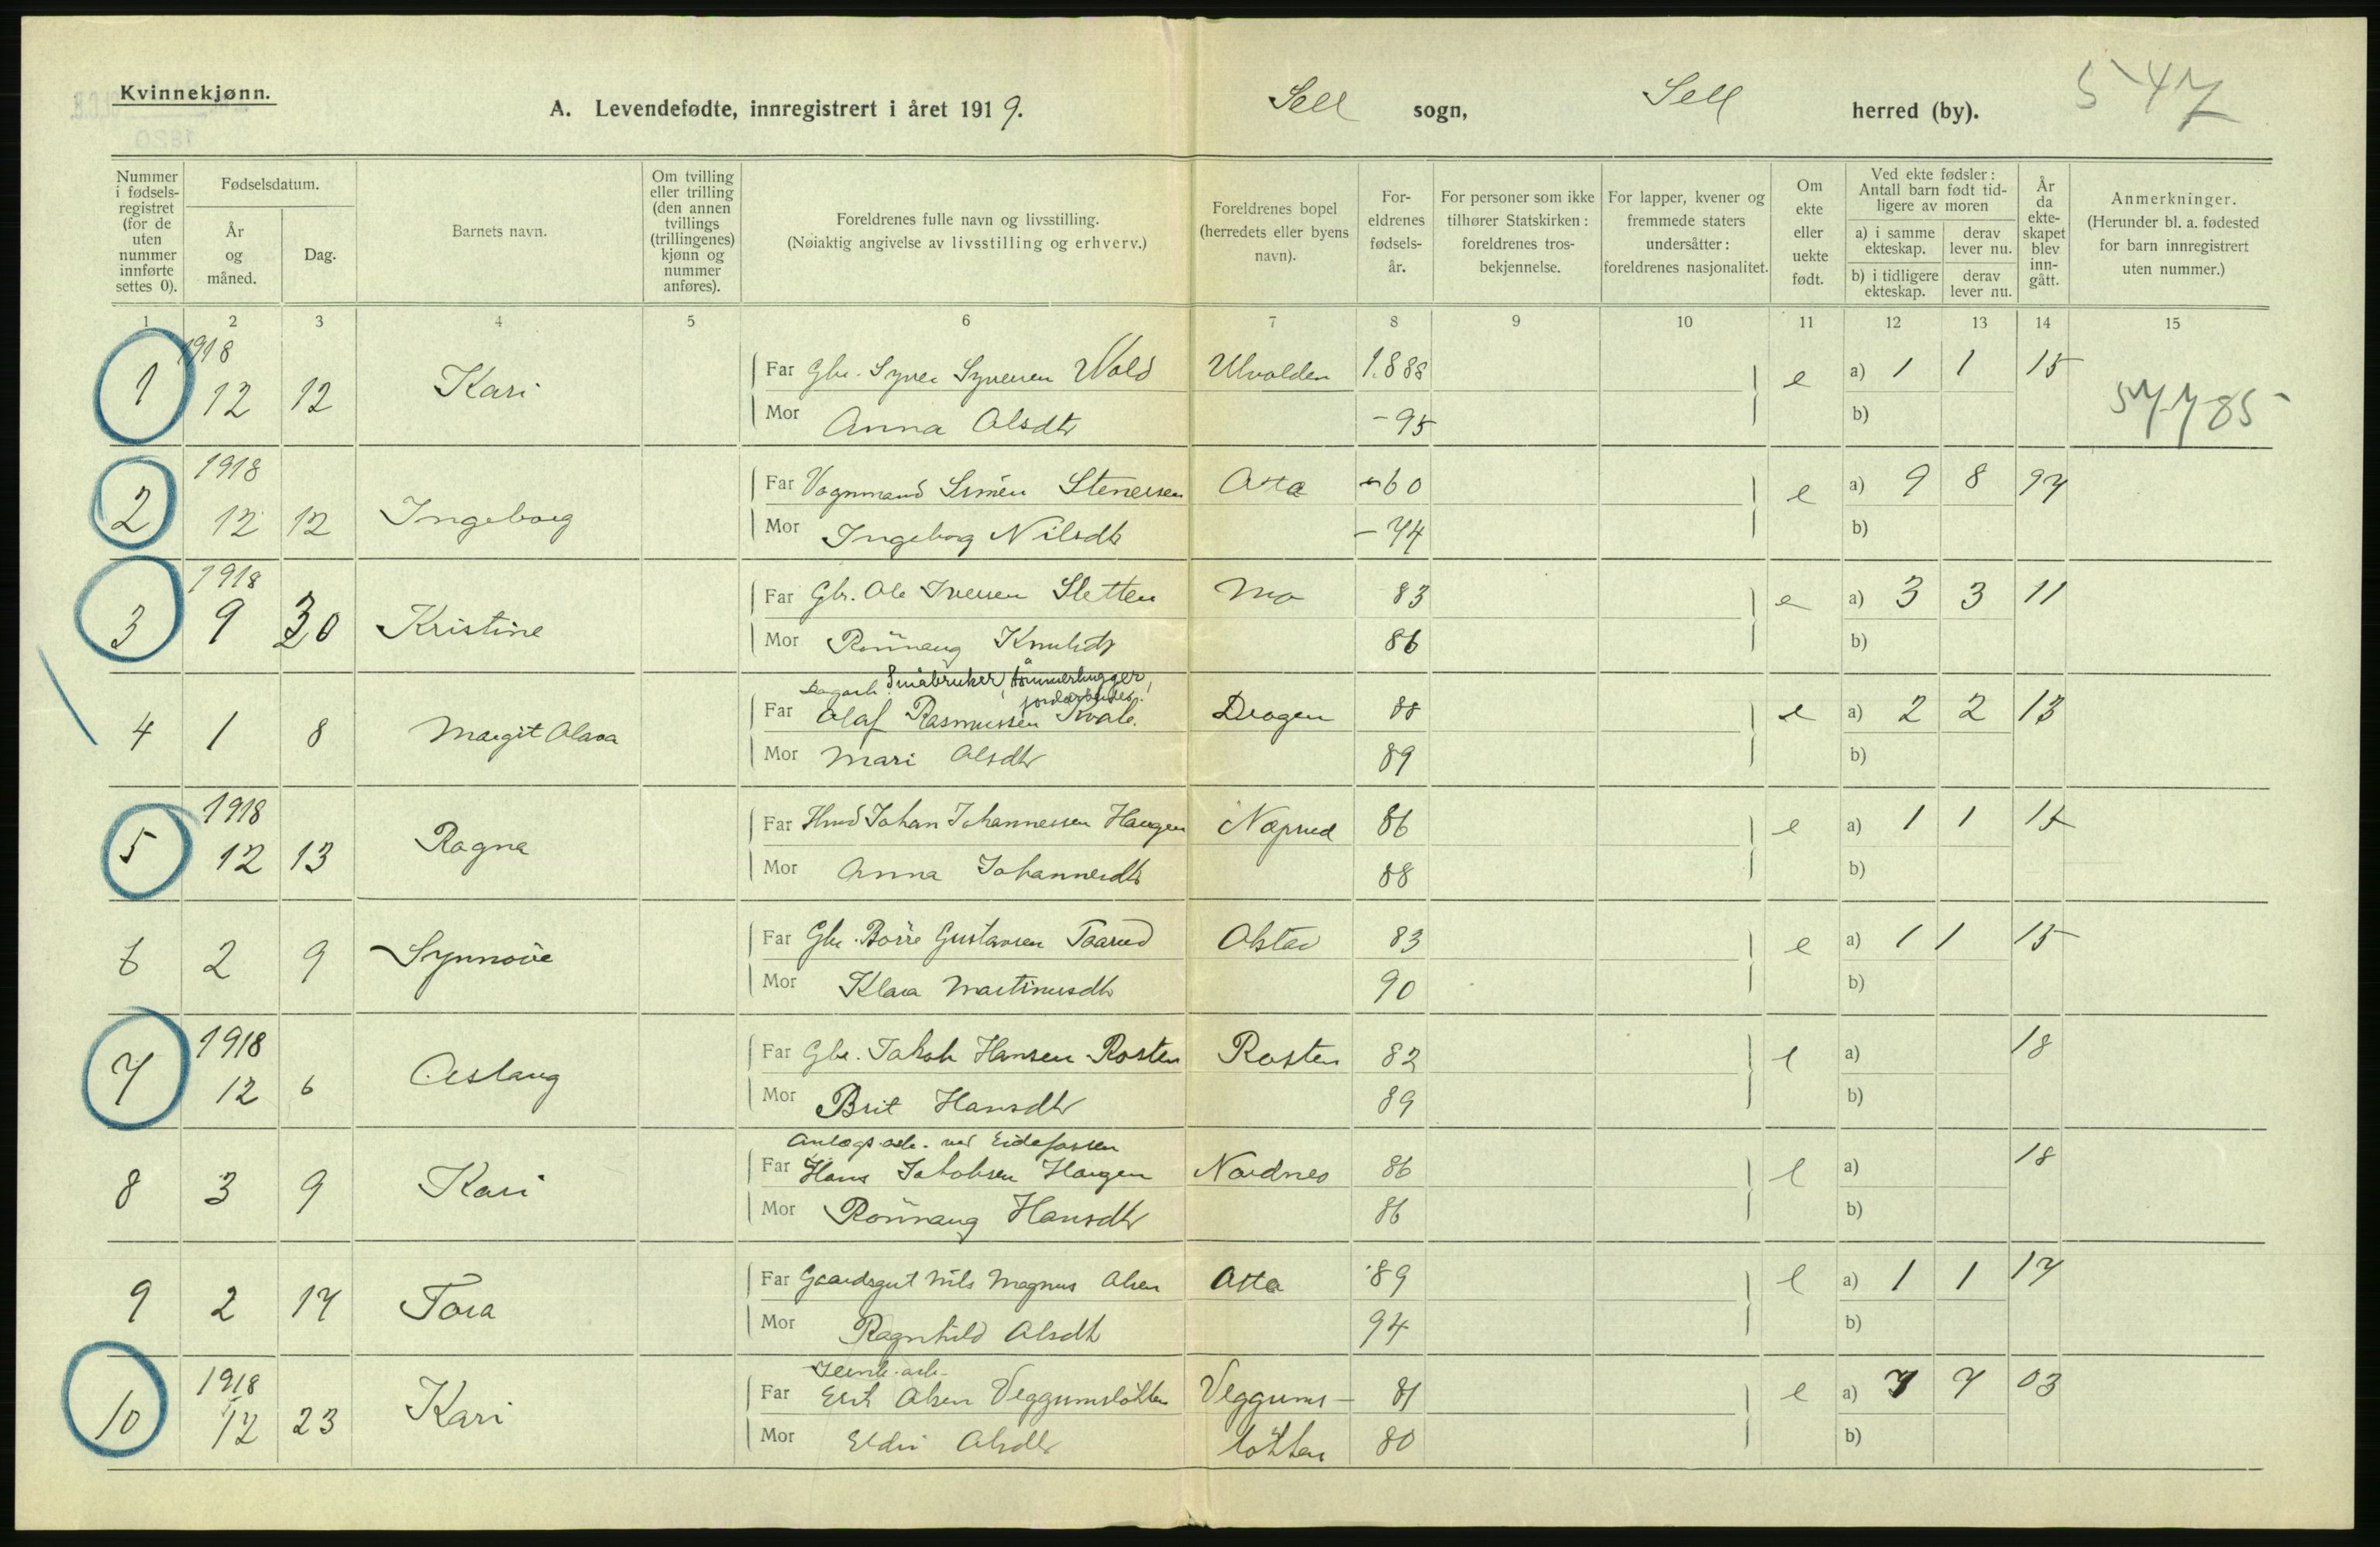 Kvinnekjønn.
A. Levendefødte, innregistrert i året 1919. Sell sogn, Sell herred (by). 547
Nummer i fødsels-registret (for de uten nummer innførte settes 0).
Fødselsdatum.
År og måned.
Dag.
Barnets navn.
Om tvilling eller trilling (den annen tvillings (trillingenes) kjønn og nummer anføres).
Foreldrenes fulle navn og livsstilling.
(Nøiaktig angivelse av livsstilling og erhverv.)
Foreldrenes bopel (herredets eller byens navn).
For-eldrenes fødsels-år.
For personer som ikke tilhører Statskirken: foreldrenes tros-bekjennelse.
For lapper, kvener og fremmede staters undersåtter: foreldrenes nasjonalitet.
Om ekte eller uekte født.
Ved ekte fødsler: Antall barn født tid-ligere av moren
a) i samme ekteskap.
derav lever nu.
b) i tidligere ekteskap.
derav lever nu.
År da ekte-skapet blev inn-gått.
Anmerkninger.
(Herunder bl. a. fødested for barn innregistrert uten nummer.)
1 2 3 4 5 6 7 8 9 10 11 12 13 14 15
1918
1 12 12 Kari Far Gbr. Syver Syversen Wold Ulvolden 1888 e a) 1 1 15
Mor Anna Olsdtr -95 b) 57785
1918
2 12 12 Ingeborg Far Vognmand Simen Stenersen Otta -60 e a) 9 8 97
Mor Ingeborg Nilsdtr -74 b)
1918
3 9 30 Kristine Far Gbr. Ole Iversen Sletten Mo 83 e a) 3 3 11
Mor Rönnaug Knutsdtr 86 b)
Dagarb. Småbruker, tømmerhugger,
jordarbeider.
4 1 8 Margit Olava Far Olaf Rasmussen Kvale. Drogen 88 e a) 2 2 13
Mor Mari Olsdtr 89 b)
1918
5 12 13 Ragna Far Hmd Johan Johannessen Haugen Næprud 86 e a) 1 1 15
Mor Anna Johannesdtr 88 b)
6 2 9 Synnöve Far Gbr. Börre Gustavsen Taarud Olstad 83 e a) 1 1 15
Mor Klara Martinusdtr 90 b)
1918
7 12 6 Aslaug Far Gbr. Jakob Hansen Rosten Rosten 82 e a) 18
Mor Brit Hansdtr 89 b)
Anlegs.arb. ved Eidefossen
8 3 9 Kari Far Hans Jakobsen Haugen Nordnes 86 e a) 18
Mor Rönnaug Hansdtr 86 b)
9 2 17 Tora Far Gaardsgut Nils Magnus Olsen Otta 89 e a) 1 1 17
Mor Ragnhild Olsdtr 94 b)
1918
10 12 23 Kari Far Erik Olsen Veggumsløkken Veggums- 81 e a) 7 7 03
Mor Eldri Olsdtr løkken 80 b)